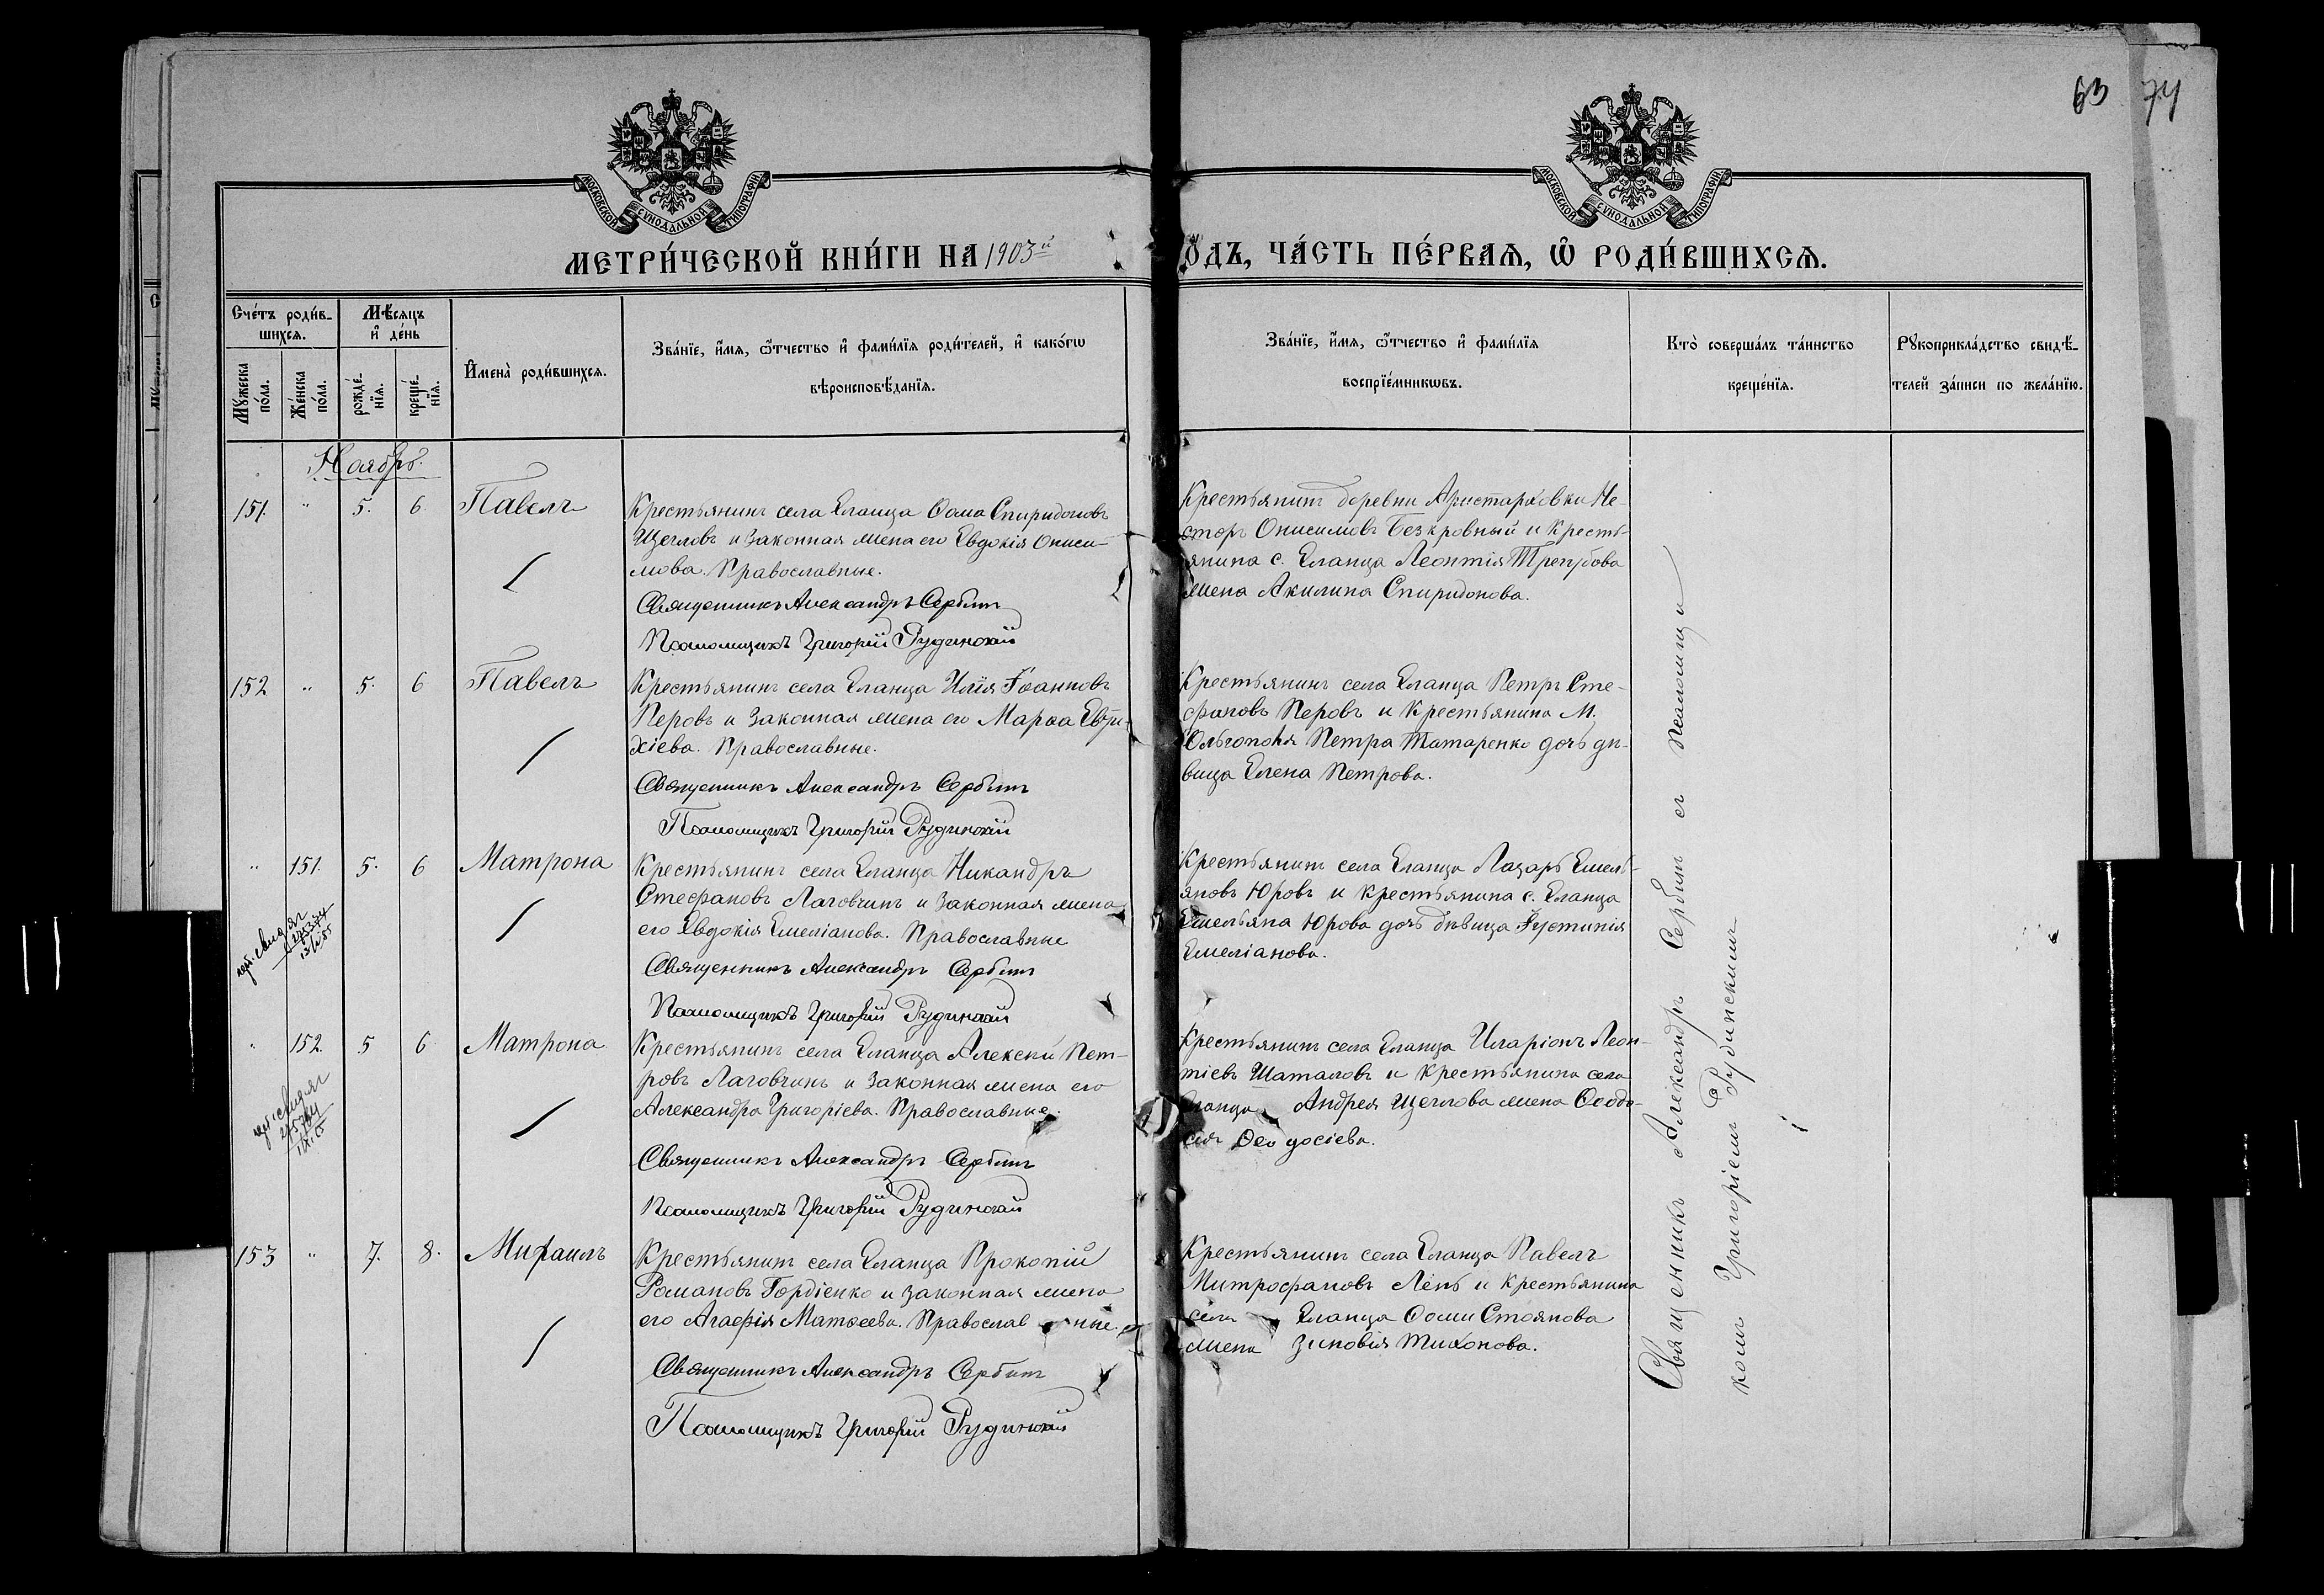 63 74
МОСКОВСКОЙ СУНОДАЛЬНОЙ ТИПОГРАФІИ
МОСКОВСКОЙ СУНОДАЛЬНОЙ ТИПОГРАФІИ
МЕТРИ́ЧЕСКОЙ КНИ́ГИ НА 1903й
ОДЪ, ЧА́СТЬ ПЕ́РВАѦ, Ѡ РОДИ́ВШИХСѦ.
Сче́тъ роди́в-
шихсѧ.
Мꙋ́жеска
по́ла.
Же́нска
по́ла.
Мѣ́сяцъ
и де́нь
рожде́-
нїѧ.
креще́-
нїѧ.
Имена̀ роди́вшихсѧ.
Зва́нїе, и́мѧ, ѻ҆́тчество и҆ фами́лїѧ роди́телей, и҆ како́гѡ
вѣроисповѣ́данїѧ.
Зва́нїе, и́мѧ, ѻ҆́тчество и҆ фами́лїѧ
воспрїе́мникѡвъ.
Кто̀ соверша́лъ та́инство
креще́нїѧ.
Рꙋкоприкла́дство свидѣ́-
телей за́писи по жела́нїю.
Ноябрь.
151. " 5. 6. Павелъ
Крестьянинъ села Еланца Ѳома Спиридоновъ
Щегловъ и законная жена его Евдокія Ониси-
мова. Православные.
Священникъ Александръ Сербинъ
Псаломщикъ Григорій Рудинскій
Крестьянинъ деревни Аристарховки Не-
сторъ Онисимовъ Безкровный и кресть-
янина с. Еланца Леонтія Трегубова
жена Акилина Спиридонова.
152 " 5. 6 Павелъ
Крестьянинъ села Еланца Илія Іоанновъ
Перовъ и законная жена его Марѳа Евти-
хіева. Православные.
Священникъ Александръ Сербинъ
Псаломщикъ Григорій Рудинскій
Крестьянинъ села Еланца Петръ Сте-
фановъ Перовъ и крестьянина М.
Ольгополя Петра Татаренко дочь дѣ-
вица Елена Петрова.
" 151. 5. 6 Матрона
Крестьянинъ села Еланца Никандръ
Стефановъ Лаговчинъ и законная жена
его Евдокія Емеліанова. Православные
Священникъ Александръ Сербинъ
Псаломщикъ Григорій Рудинскій
Крестьянинъ села Еланца Лазарь Емель-
яновъ Юровъ и крестьянина с. Еланца
Емельяна Юрова дочь дѣвица Іустинія
Емеліанова.
" 152. 5 6 Матрона
Крестьянинъ села Еланца Алексѣй Пет-
ровъ Лаговчинъ и законная жена его
Александра Григоріева. Православные.
Священникъ Александръ Сербинъ
Псаломщикъ Григорій Рудинскій
Крестьянинъ села Еланца Иларіонъ Леон-
тіевъ Шаталовъ и крестьянина села
Еланца Андрея Щеглова жена Ѳеодо-
сія Ѳеодосіева.
153 " 7. 8. Михаилъ
Крестьянинъ села Еланца Прокопій
Романовъ Гордіенко и законная жена
его Агафія Матѳеева. Православные.
Священникъ Александръ Сербинъ
Псаломщикъ Григорій Рудинскій
Крестьянинъ села Еланца Павелъ
Митрофановъ Лень и крестьянина
села Еланца Ѳомы Стоянова
жена Зиновія Тихонова.
Священникъ Александръ Сербинъ съ псаломщи-
комъ Григоріемъ Рудинскимъ